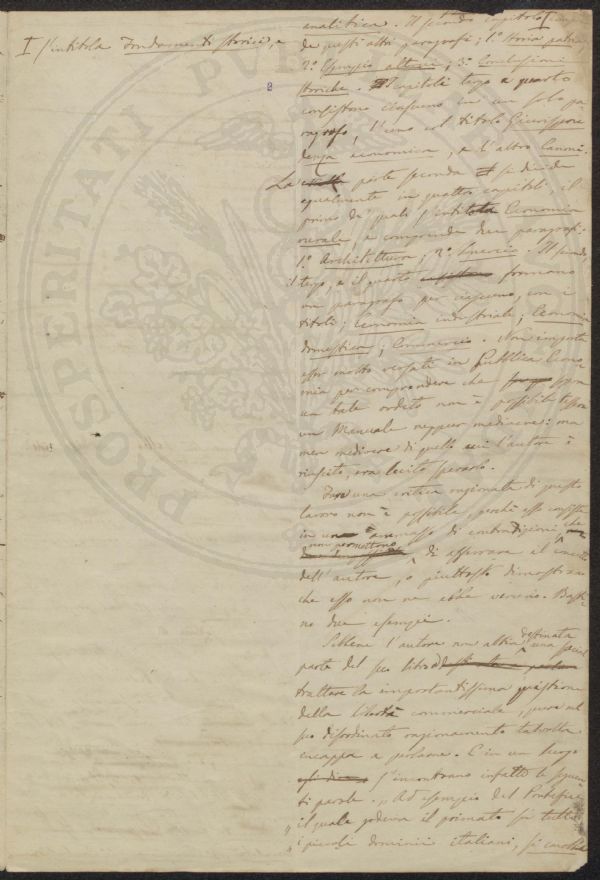 I s'intitola Fondamenti storici, e
analitica. Il secondo capitolo
de questi altri paragrafi; 1.° Storia patria
2.° Esempio altrui; 3.° Conclusioni
storiche. I capitoli terzo e quarto
consistono ciascuno in un solo pa
ragrafo, l'uno col titolo Giurisprü
denza economica, e l'altro Canoni.
La parte seconda si divide
egualmente in quattro capitoli, il
primo de' quali s'intitola Economia
rurale, e comprende due paragrafi:
1.° Architettura; 2.° Il secondo,
il terzo, e il quarto formano
un paragrafo per ciascuno, con i
titoli; Economia industriale; Economia
domestica; Commercio. Non importa
esser molto versato in Pubblica Econo
mia per comprendere che sopra
un tale ordito non è possibile tessere
un Manuale neppur mediocre: ma
men mediocre di quello cui l'autore è
riuscito, era lecito sperarlo.
Fare una critica ragionata di questo
lavoro non è possibile, perché esso consiste
in un ammasso di contraddizioni che
non permettono di afferrare il concetto
dell'autore, o piuttosto dimostrano
che esso non ne ebbe veruno. Basti
no due esempi.
Sebbene l'autore non abbia destinata una special
parte del suo libro a
trattare la importantissima quistione
della libertà commerciale, pure nel
suo disordinato ragionamento talvolta
incappa a parlarne. E in un luogo
s'incontrano infatti le seguen
ti parole. „ Ad esempio del Pontefice
„ il quale godeva il primato su tutti
„ i piccoli dominii italiani,
PROSPERITATI PVBL